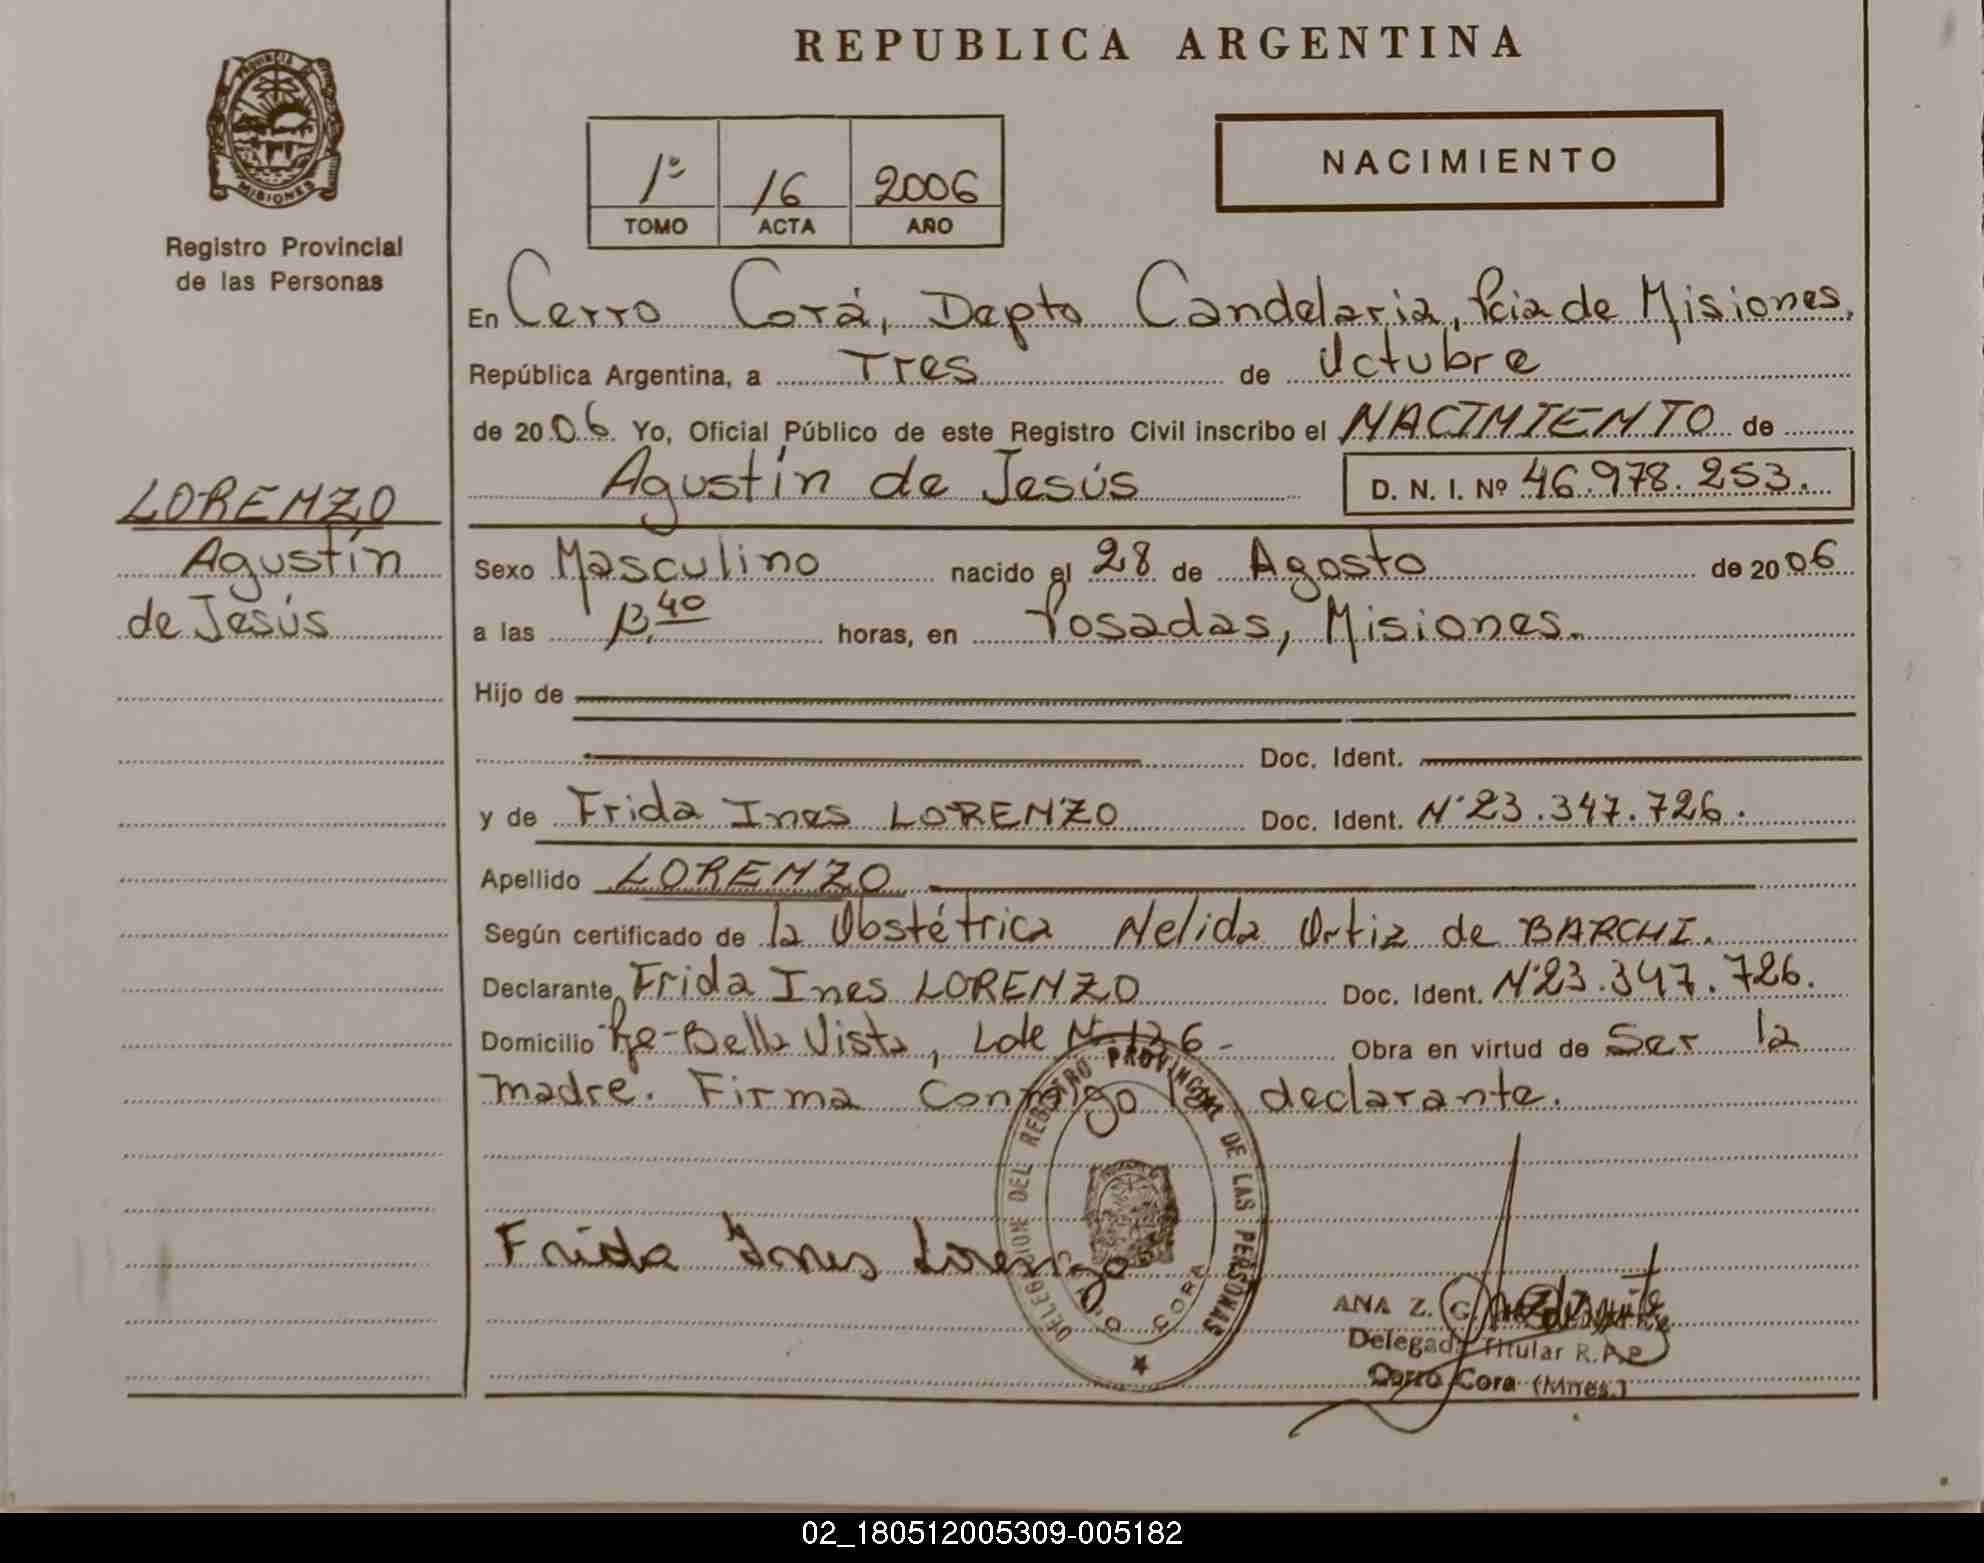 REPUBLICA ARGENTINA
PROVINCIA DE
MISIONES
Registro Provincial
de las Personas
1º 16 2006
TOMO ACTA AÑO
NACIMIENTO
En Cerro Corá, Depto Candelaria, Pcia de Misiones,
República Argentina, a Tres de Octubre
de 2006. Yo, Oficial Público de este Registro Civil inscribo el NACIMIENTO de
Agustín de Jesús D. N. I. Nº 46.978.253.
LORENZO
Agustín
de Jesús
Sexo Masculino nacido el 28 de Agosto de 2006
a las 13,40 horas, en Posadas, Misiones.
Hijo de
Doc. Ident.
y de Frida Ines LORENZO Doc. Ident. Nº 23.347.726.
Apellido LORENZO
Según certificado de la Obstétrica Nelida Ortiz de BARCHI.
Declarante Frida Ines LORENZO Doc. Ident. Nº 23.347.726.
Domicilio Pje-Bella Vista, Lote Nº 136- Obra en virtud de Ser la
madre. Firma Conmigo la declarante.
DELEGACION DEL REGISTRO PROVINCIAL DE LAS PERSONAS
CORA
Frida Ines Lorenzo
ANA Z. G.
Delegada Titular R.P.P
Cerro Cora (Mnes.)
02_180512005309-005182